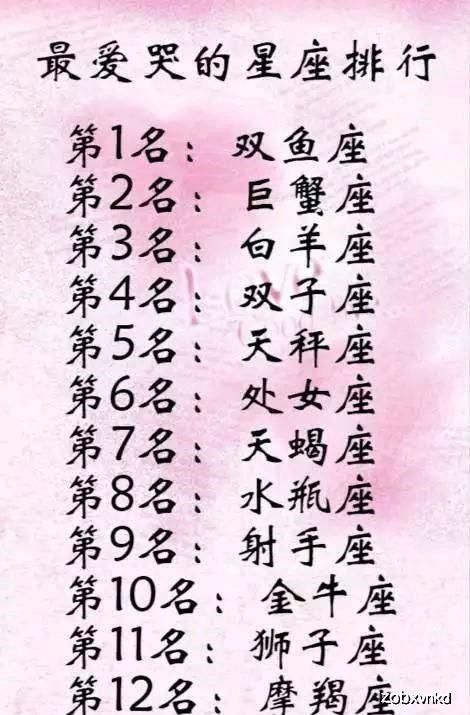 最爱哭的星座排行
第1名：双鱼座
第2名：巨蟹座
第3名：白羊座
第4名：双子座
第5名：天秤座
第6名：处女座
第7名：天蝎座
第8名：水瓶座
第9名：射手座
第10名：金牛座
第11名：狮子座
第12名：摩羯座
Zobxvnkd